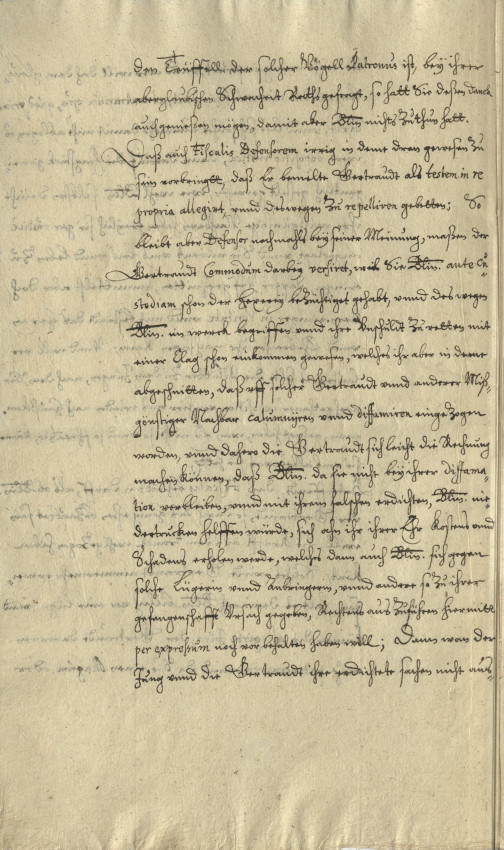 den Teüffell, der solcher Vögell Patronus ist, beÿ ihrer
abergläubischen Schwacheit Raths gefragt, so hatt Sie deßen danck
auch geniessen mögen, damit aber Bltin nichts zu thun hatt.
Daß auch Fiscalis Defensorem irrig in deme dran gewesen zu
sein vorbringet, daß Er bemelte Gertraudt als testem in re
propria allegirt, vnnd deswegen zu repelliren gebetten; So
bleibt aber Defensor nochmahls beÿ seiner Meinung, maßen der
Gertraudt Commodum darbeÿ versirt, weil Sie Bltin. ante Cu-
stodiam schon der Hexereÿ bezüchtiget gehabt, vnnd des wegen
Bltin. im werck begriffen vnnd ihre Vnschuldt zu retten mit
einer Clag schon einkommen gewesen, welches ihr aber in deme
abgeschnitten, daß vff solcher Gertraudt vnnd anderer Miß-
günstiger Nachbar calumnijren vnnd diffamiren eingezogen
worden, vnnd dahero die Gertraudt sich leicht die Rechnung
machen können, daß Bltin. da sie nicht beÿ ihrer Diffama-
tion verbleiben, vnnd mit ihrem falschen erdichten, Bltin. nie-
dertrucken helffen würde, sich ahn ihr ihrer Ehr Kostens vnd
Schadens erholen werde, welches dann auch Bltin. sich gegen
solche Lügerin vnnd Anbringern, vnnd andere so zu ihrer
gefangenschafft Vrsach gegeben, Rechtens auszuführen hiermitt
per expressum noch vorbehalten haben will; Dann wan der
Jung vnnd die Gertraudt ihre erdichtete sachen nicht aus-